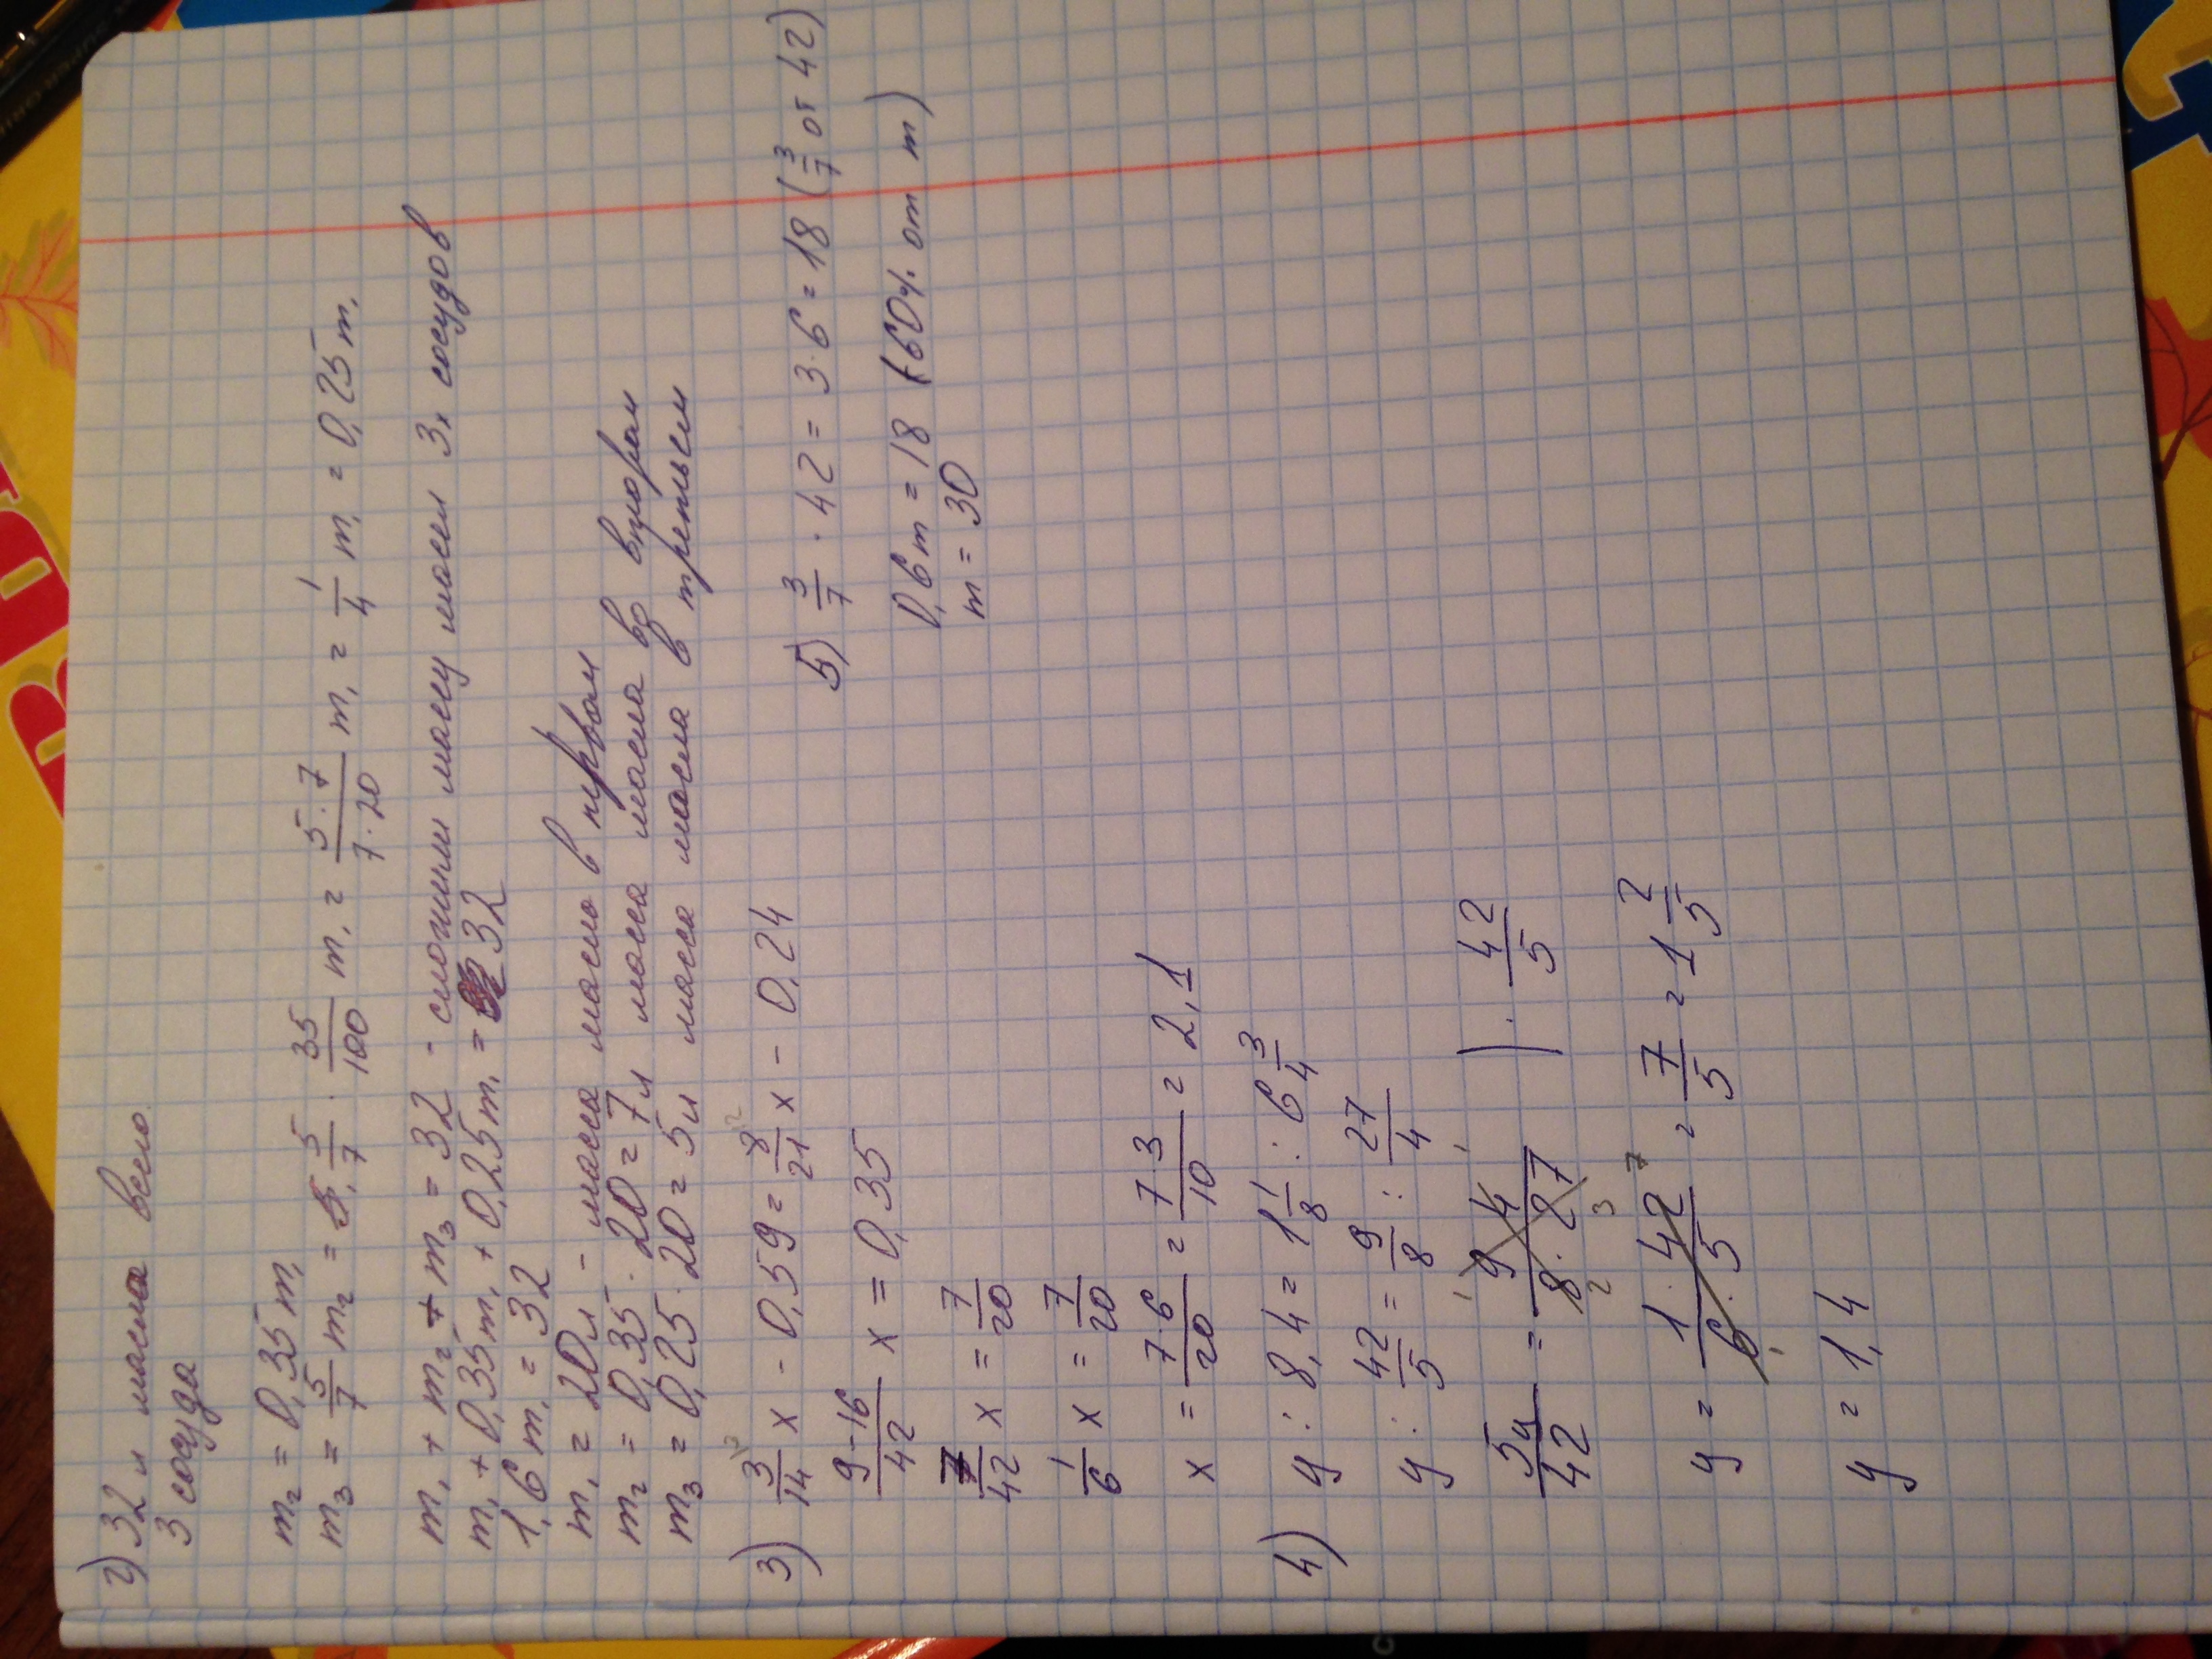 2) 32 л масла всего
3 сосуда
m₂ = 0,35 m₁
m₃ = 5/7 m₂ = 5/7 · 35/100 m₁ = 5·7/7·20 m₁ = 1/4 m₁ = 0,25 m₁
m₁ + m₂ + m₃ = 32 - сложили массу масел 3х сосудов
m₁ + 0,35m₁ + 0,25m₁ = 32
1,6 m₁ = 32
m₁ = 20л - масса масло в первом
m₂ = 0,35 · 20 = 7л масса масла во втором
m₃ = 0,25 · 20 = 5л масса масла в третьем
3) 3/14 x - 0,59 = 8/21 x - 0,24
9-16/42 x = 0,35
7/42 x = 7/20
1/6 x = 7/20
x = 7·6/20 = 7·3/10 = 2,1
4) y : 8,4 = 1 1/8 : 6 3/4
y : 42/5 = 9/8 : 27/4
5y/42 = 9·4/8·27 | · 42/5
y = 1·42/6·5 = 7/5 = 1 2/5
y = 1,4
5) 3/7 · 42 = 3·6 = 18 (3/7 от 42)
0,6m = 18 (60% от m)
m = 30